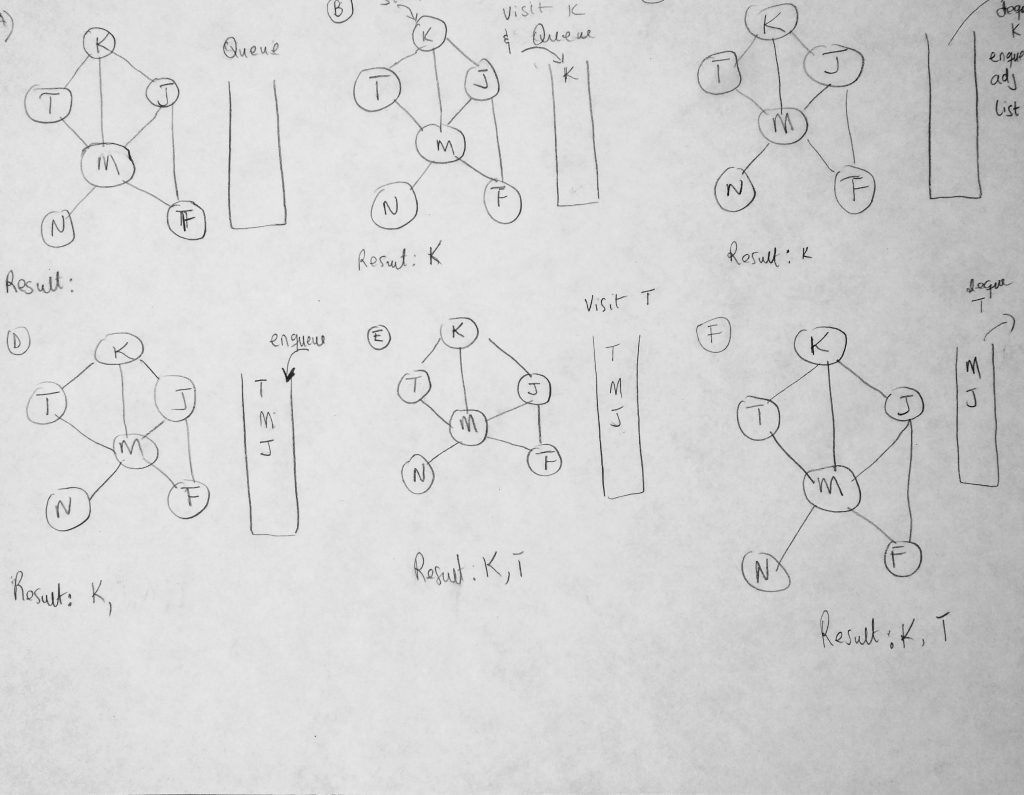 A)
K
T
J
M
N
F
Queue
Result:
B
K
T
J
M
N
F
Visit K
& Queue
K
Result: K
K
T
J
M
N
F
K
enque
adj
list
Result: K
D
K
T
J
M
N
F
enqueue
T
M
J
Result: K,
E
K
T
J
M
N
F
Visit T
T
M
J
Result: K, T
F
K
T
J
M
N
F
deque
T
M
J
Result: K, T